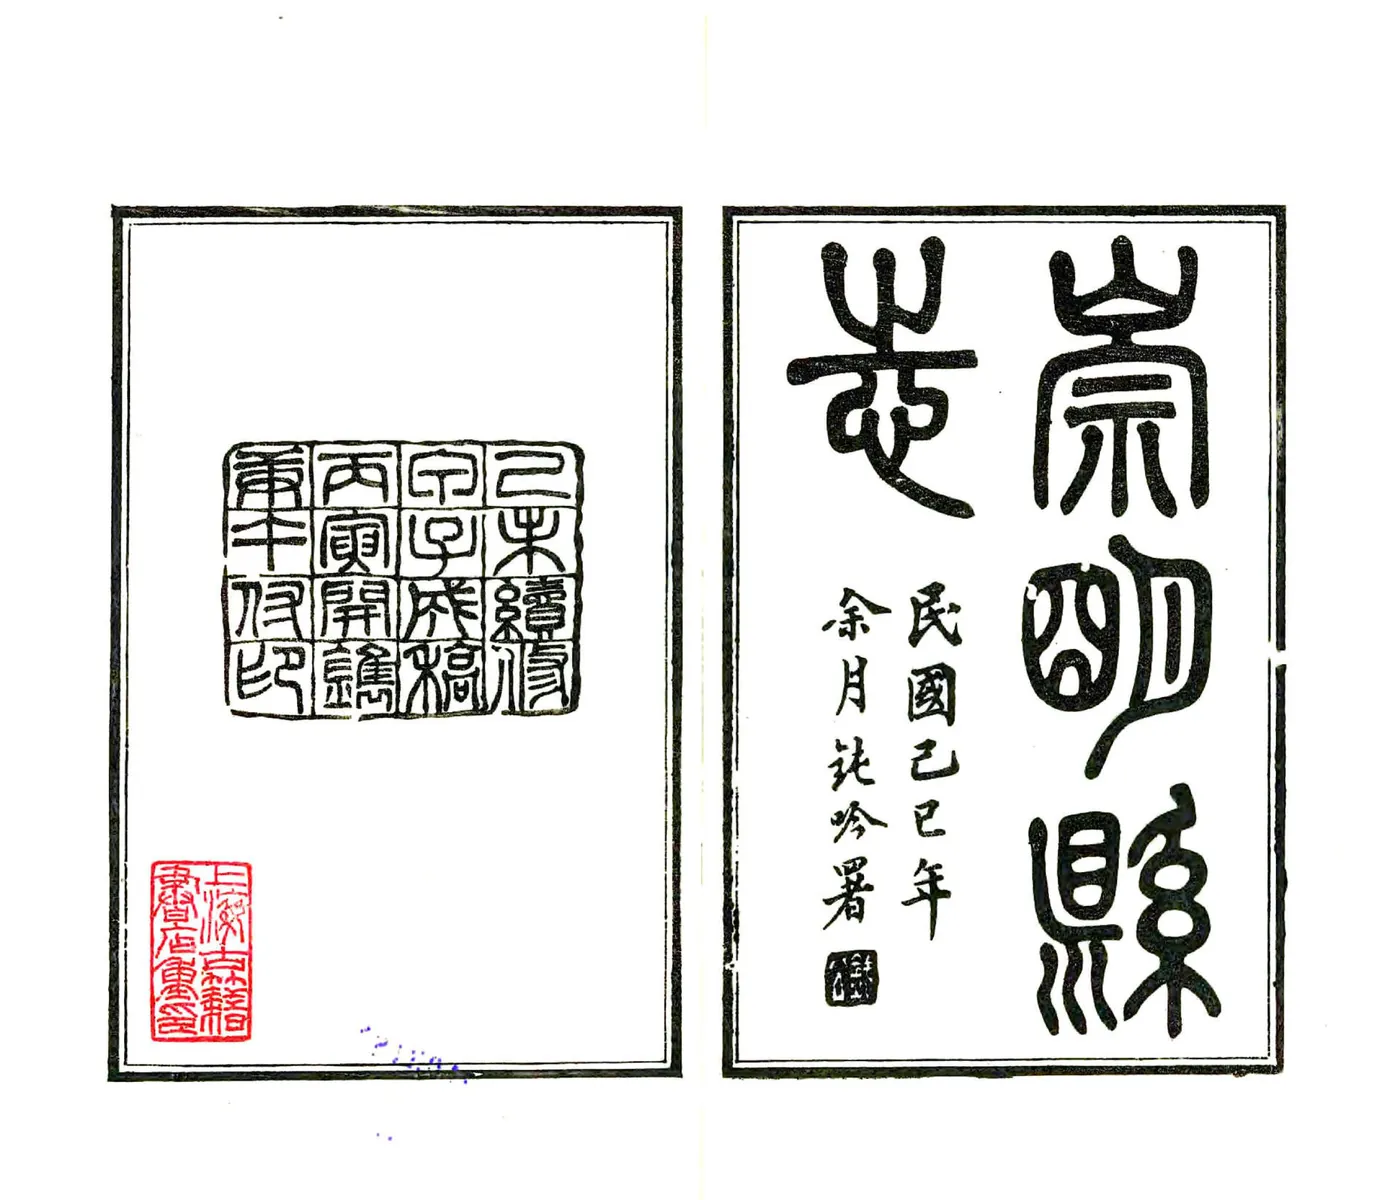 崇明縣
志
民國己巳年
余月鈍吟署
己未續修
甲子成稿
丙寅開鐫
庚午付印
上海古籍
書店重印